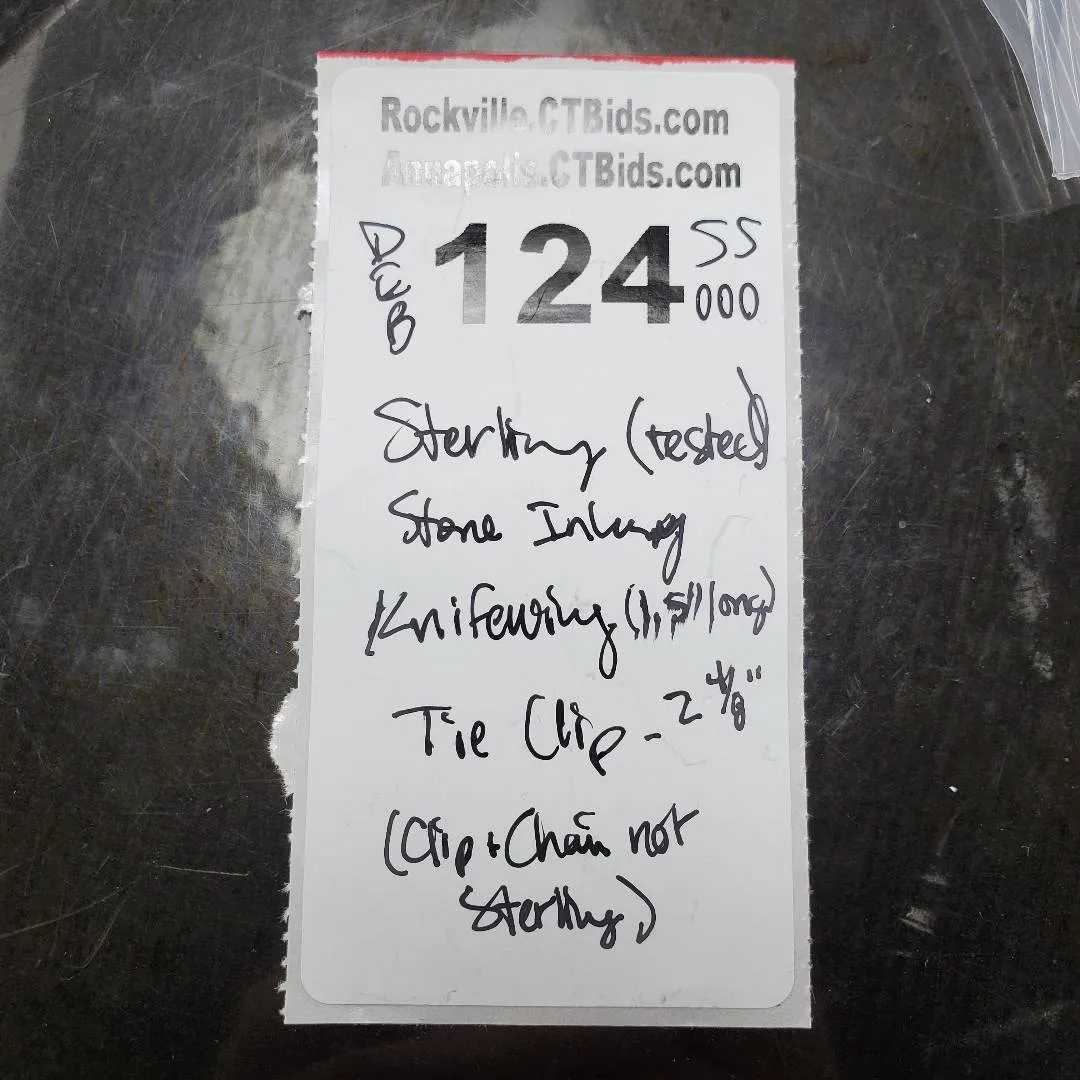 Rockville.CTBids.com
Annapolis.CTBids.com
DCB 124 SS
000
Sterling (tested)
Stone Inlay
Knifewing (1,5" long)
Tie Clip - 2 4/8"
(Clip + Chain not
Sterling)